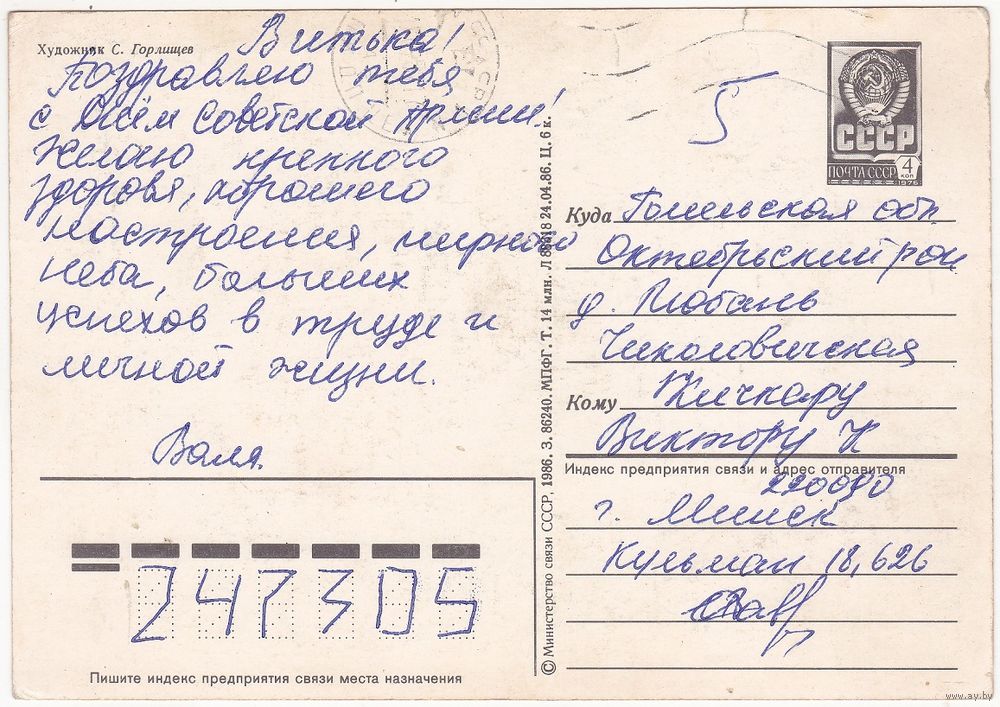 Художник С. Горлищев
Витька!
Поздравляю тебя
с Днём Советской Армии!
Желаю крепкого
здоровя, хорошего
настроения, мирного
неба, больших
успехов в труде и
личной жизни.
Валя.
5
СССР
ПОЧТА СССР
4
коп
1976
Куда Гомельская обл
Октябрьский рон
д. Любань
Кому
Виктору К
Индекс предприятия связи и адрес отправителя
220030
г. Минск
Кульман 18, 626
247305
Пишите индекс предприятия связи места назначения
© Министерство связи СССР, 1986. З. 86240. МПФГ. Т. 14 млн. Л 24.04.86. Ц. 6 к.
www.ay.by